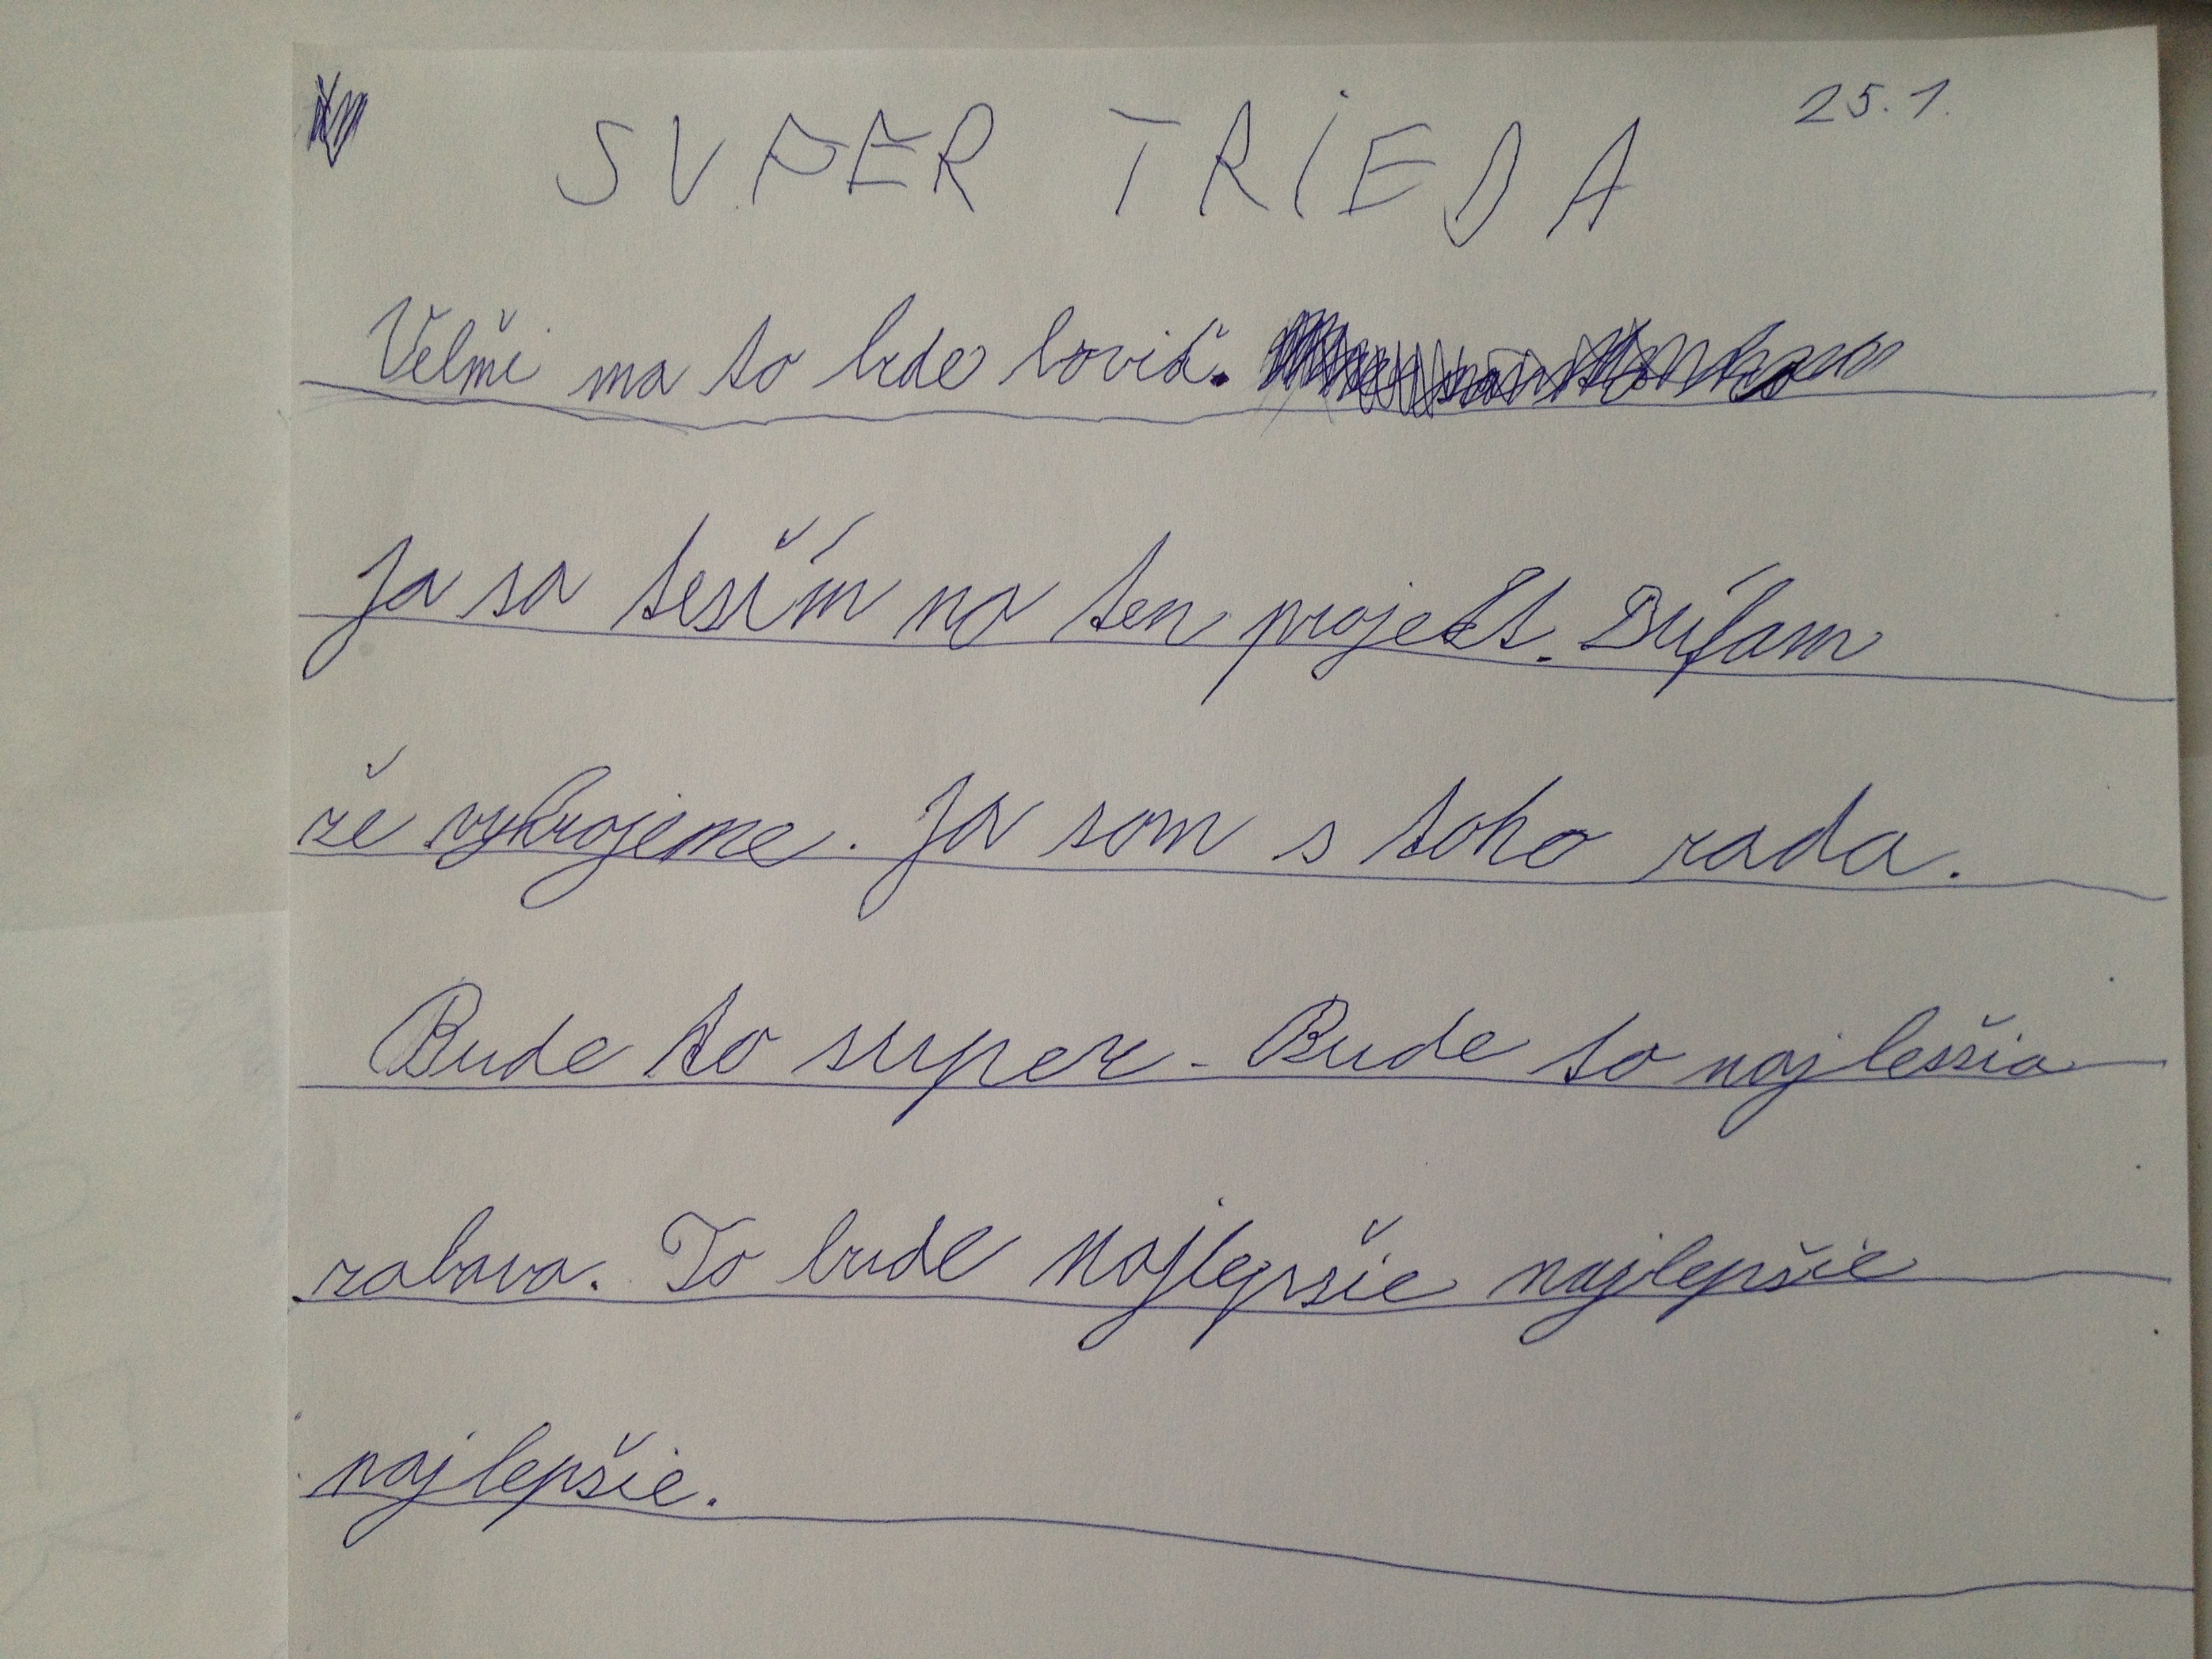 25.1.
SUPER TRIEDA
Velmi ma to bude baviť.
Ja sa teším na ten projekt. Dúfam
že vyhrajeme. Ja som s toho rada.
Bude to super. Bude to najlešia
zabava. To bude najlepšie najlepšie
najlepšie.